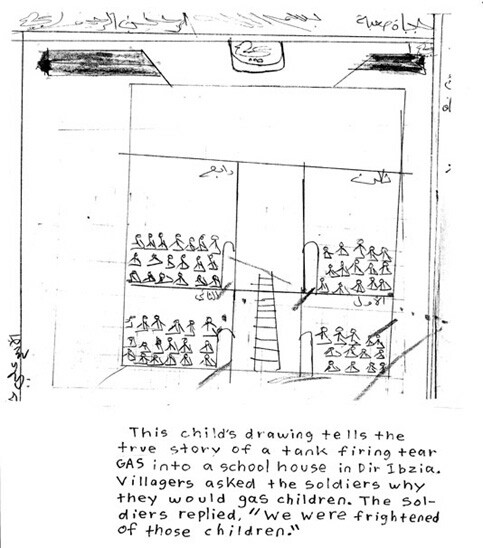 ثالث
رابع
الاول
الثاني
This child's drawing tells the
true story of a tank firing tear
GAS into a school house in Dir Ibzia.
Villagers asked the soldiers why
they would gas children. The sol-
diers replied, "We were frightened
of those children."